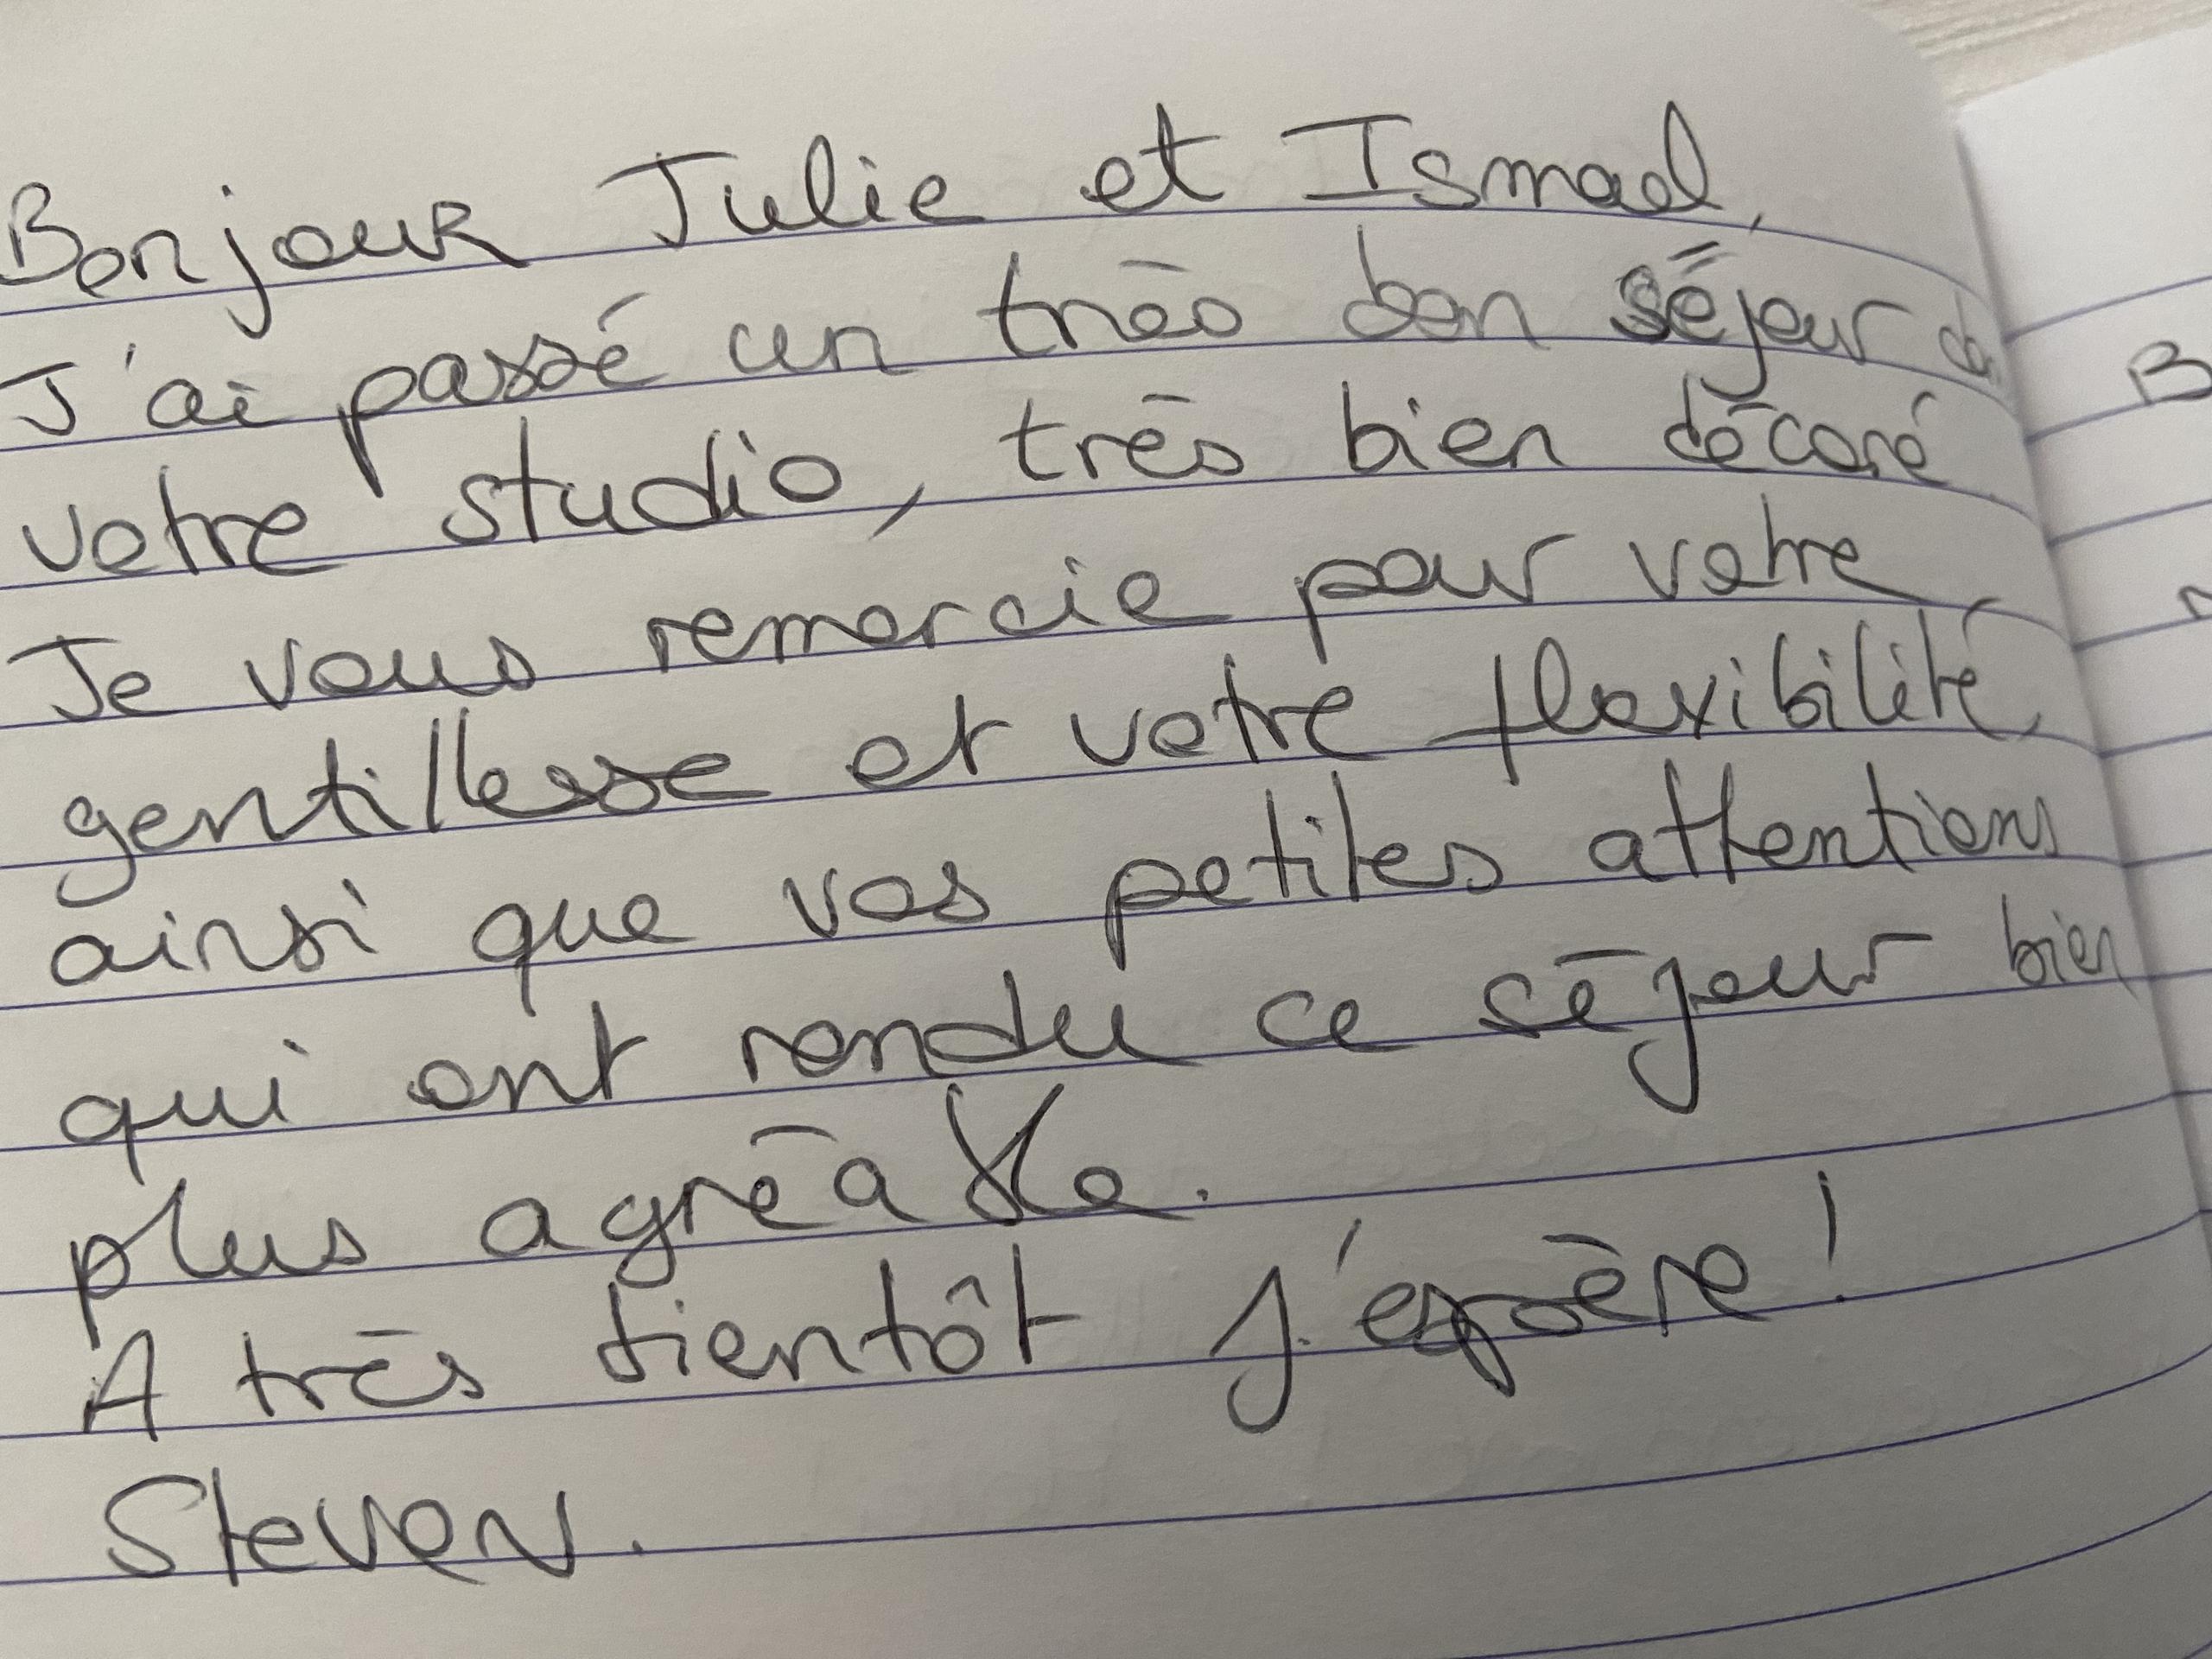 Bonjour Julie et Ismael,
J'ai passé un très bon séjour
votre studio, très bien décoré
Je vous remercie pour votre
gentillesse et votre flexibilité,
ainsi que vos petites attentions
qui ont rendu ce séjour bien
plus agréable.
A très bientôt j'espère !
Steven.
B